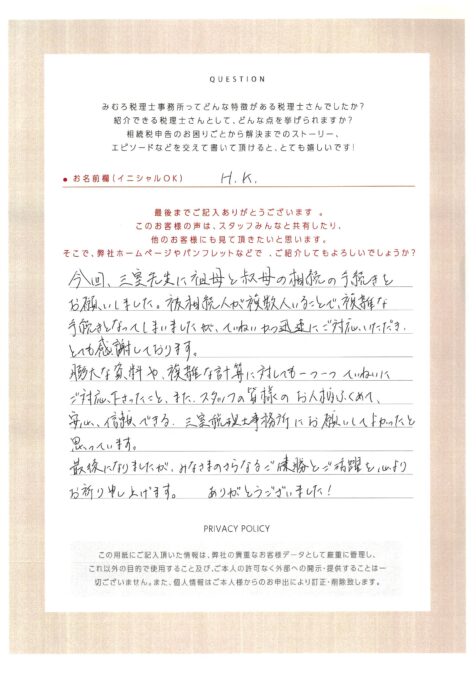 QUESTION
みむろ税理士事務所ってどんな特徴がある税理士さんでしたか?
紹介できる税理士さんとして、どんな点を挙げられますか?
相続税申告のお困りごとから解決までのストーリー、
エピソードなどを交えて書いて頂けると、とても嬉しいです!
● お名前欄(イニシャルOK) H.K.
最後までご記入ありがとうございます。
このお客様の声は、スタッフみんなと共有したり、
他のお客様にも見て頂きたいと思います。
そこで、弊社ホームページやパンフレットなどで、ご紹介してもよろしいでしょうか?
今回、三室先生に祖母と叔母の相続の手続きを
お願いしました。被相続人が複数人いることで、複雑な
手続きとなってしまいましたが、ていねいかつ迅速にご対応いただき、
とても感謝しております。
膨大な資料や、複雑な計算に対しても一つ一つていねいに
ご対応下さったこと、また、スタッフの皆様のお人柄ふくめて、
安心、信頼できる、三室税理士事務所にお願いしてよかったと
思っています。
最後になりましたが、みなさまのさらなるご健勝とご活躍を心より
お祈り申し上げます。 ありがとうございました!
PRIVACY POLICY
この用紙にご記入頂いた情報は、弊社の貴重なお客様データとして厳重に管理し、
これ以外の目的で使用すること及び、ご本人の許可なく外部への開示・提供することは一
切ございません。また、個人情報はご本人様からのお申出により訂正・削除致します。